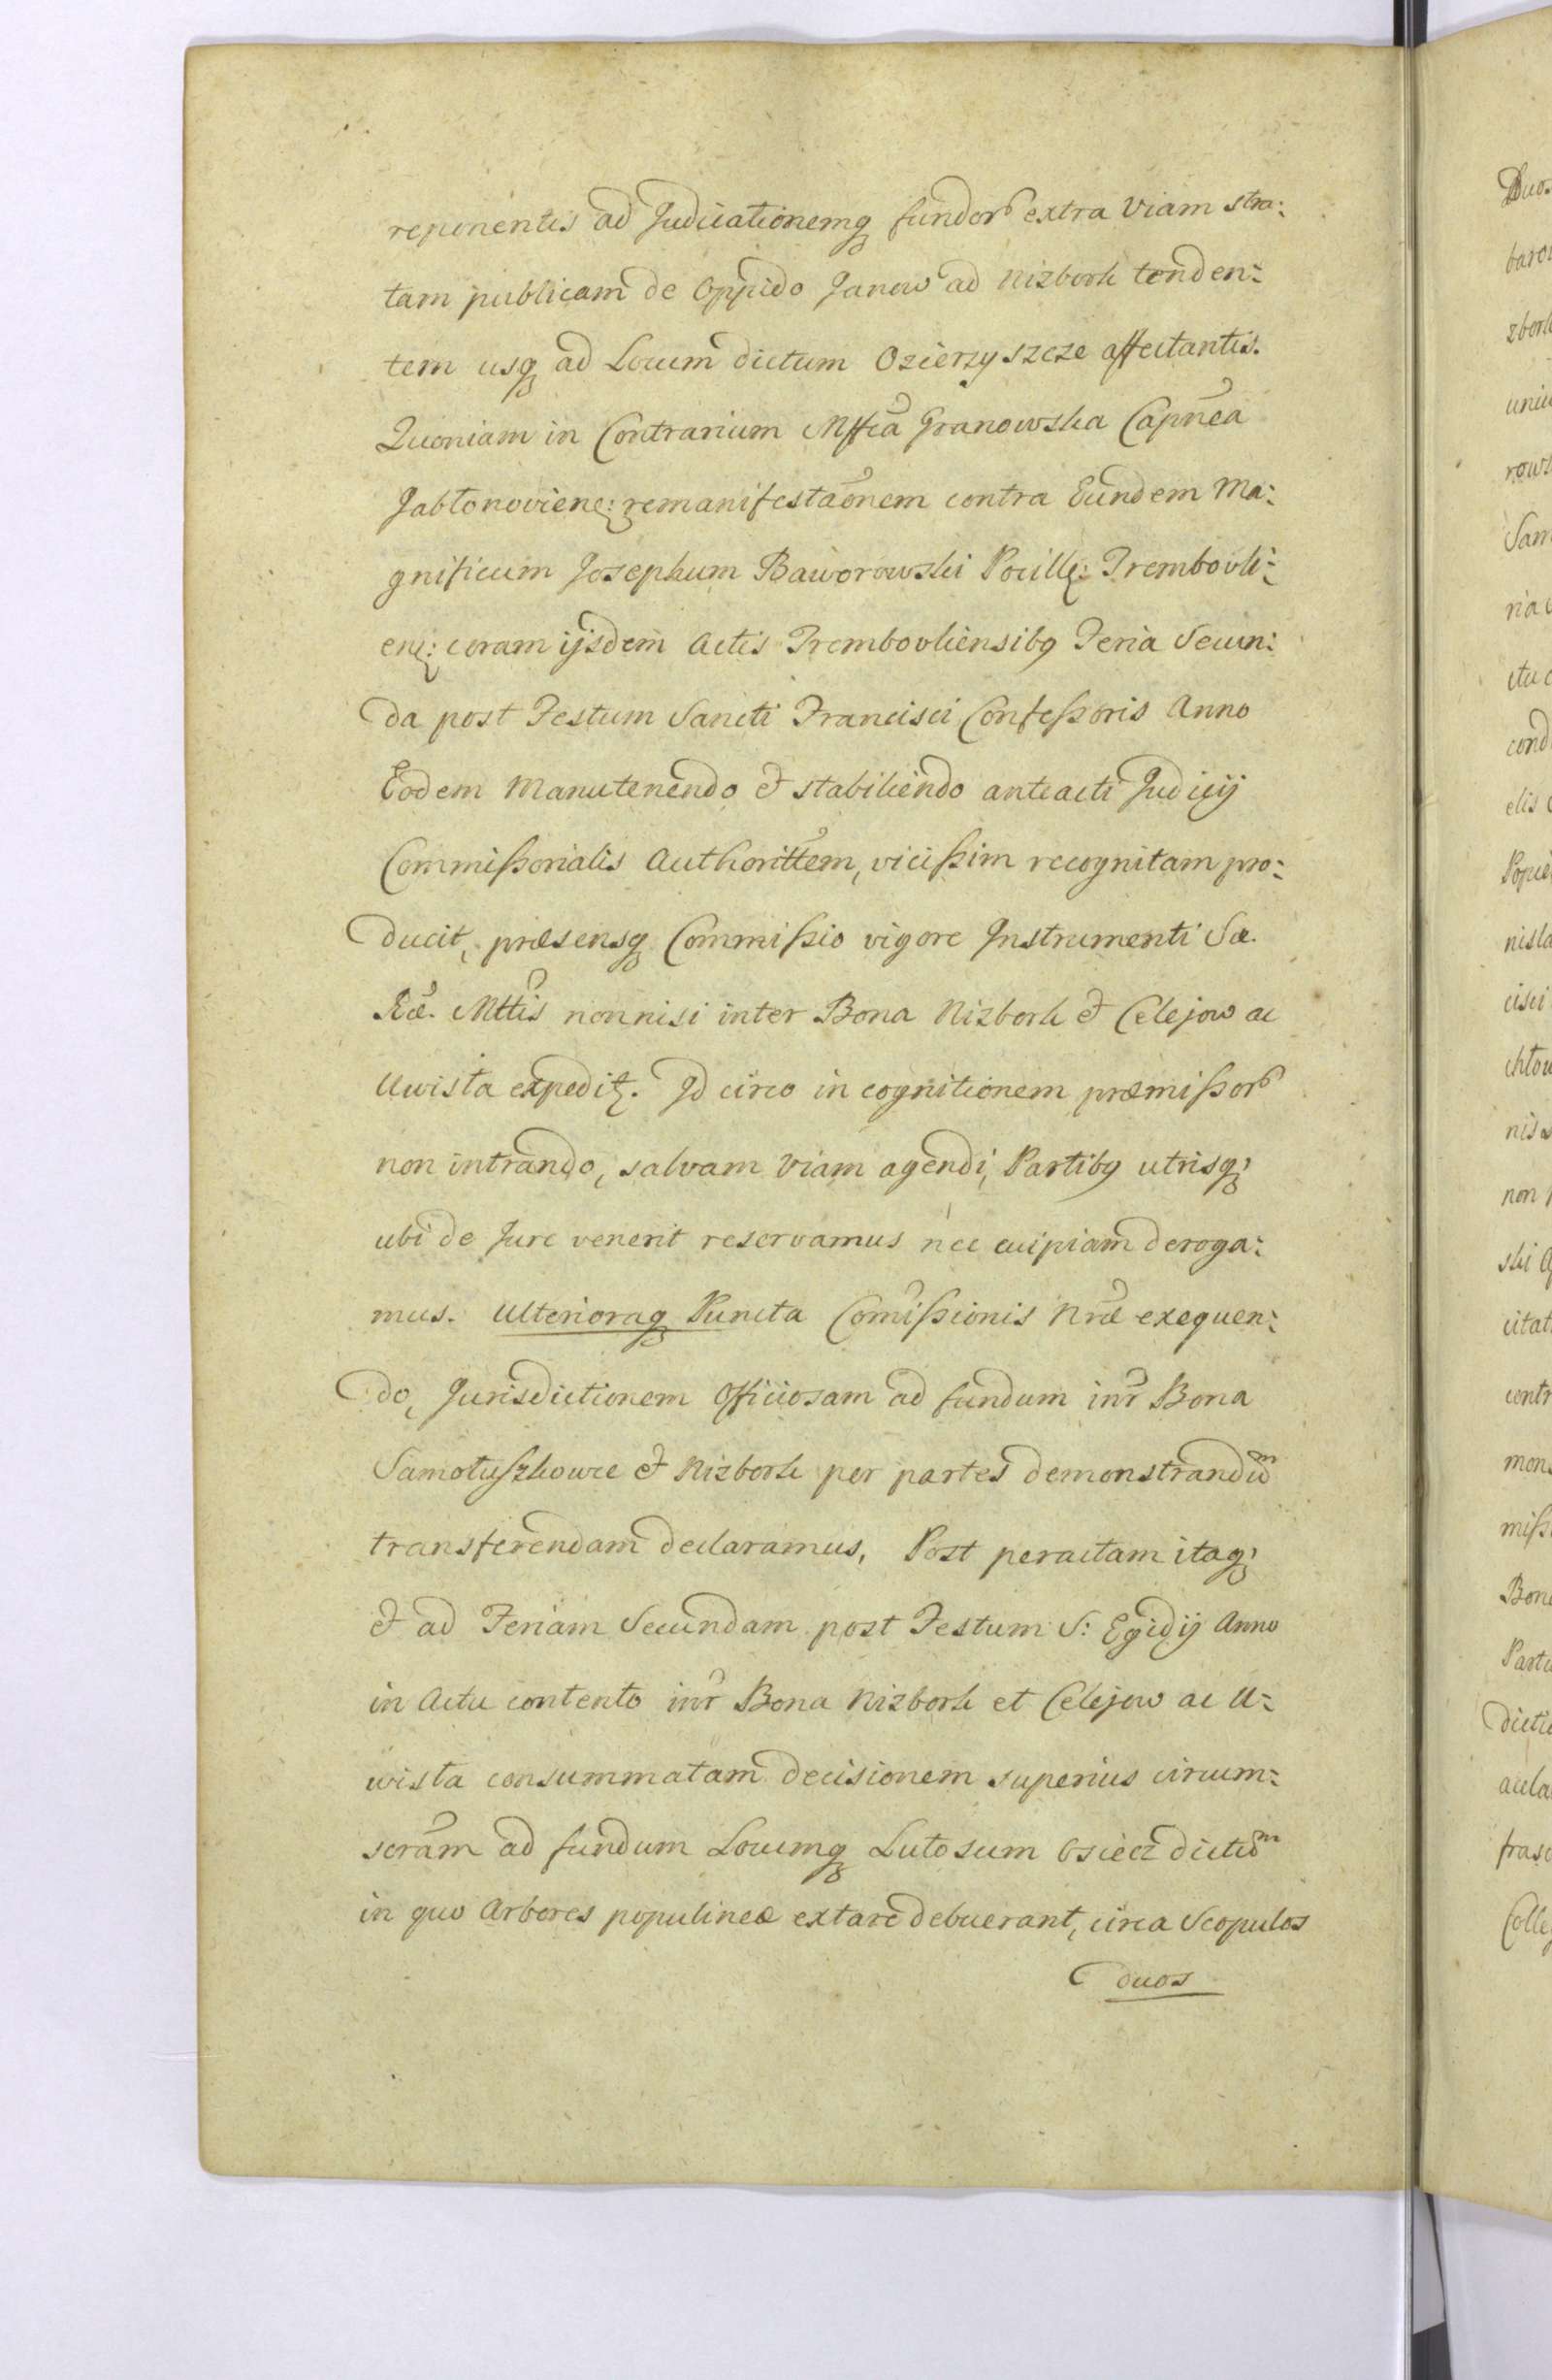 reponentis ad Judicationemq fundor extra Viam stra:
tam publicam de Oppido Janow ad Nizbork tenden:
tem usq ad Locum dictum Ozierzyszcze affectantis.
Quoniam in Contrarium Mffca Granowska Capnea
Jabłonoviene: remanifestaonem contra Eundem Ma:
gnificum Josephum Baworowski Pocill: Trembovli:
en: coram ijsdem Actis Trembovliensibq Feria Secun:
da post Festum Sancti Francisci Confeßoris Anno
Eodem Manutenendo & stabiliendo anteacti Judicij
Commißorialis Authorittem, vicißim recognitam pro:
ducit, præsensq Commißio vigore Instrumenti Sæ.
Ræ. Mttis nonnisi inter Bona Nizbork & Celejow ac
Uwista expedit. Id circo in cognitionem præmißor
non intrando, salvam Viam agendi, Partibq utrisq
ubi de Jure venerit reservamus nec cuipiam deroga:
mus. Ulterioraq Puncta Comißionis Nræ exequen:
do, Jurisdictionem Officiosam ad fundum inr Bona
Samołuszkowce & Nizbork per partes demonstrandum
transferendam declaramus, Post peractam itaq
& ad Feriam Secundam post Festum S: Egidij Anno
in Actu contento inr Bona Nizbork et Celejow ac U:
wista consummatam decisionem superius circum:
scram ad fundum Locumq Lutosum Osiecz dictum
in quo Arbores populineæ extare debuerant, circa Scopulos
duos